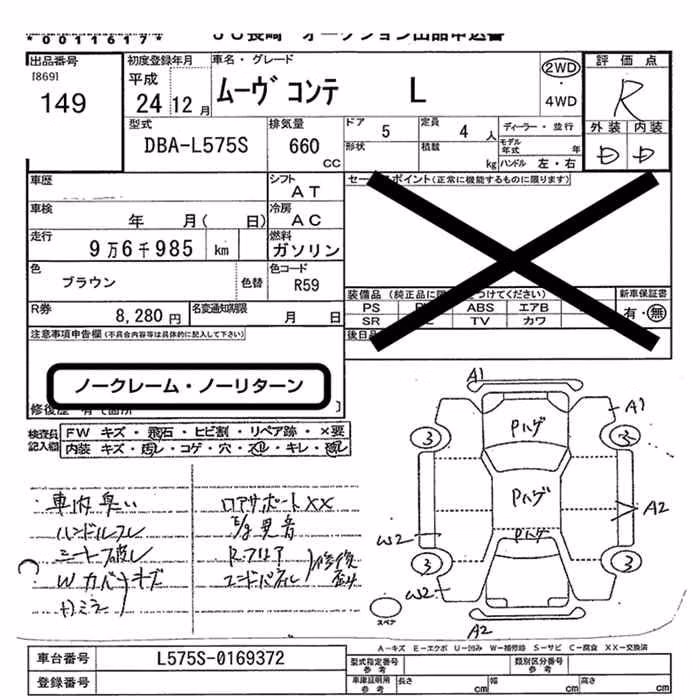 *0011617* JU長崎 オークション出品申込書
出品番号 初度登録年月 車名・グレード 評価点
[869] 平成 ムーヴ コンテ L 2WD
149 24 12月 4WD R
外装 内装
型式 排気量 ドア 5 定員 4人 ディーラー・並行 D D
DBA-L575S 660 CC 形状 積載 kg モデル年式 年 ハンドル 左・右
車歴 シフト AT セールスポイント(正常に機能するものに限ります)
車検 年 月( 日) 冷房 AC
走行 9万6千985 km 燃料 ガソリン
色 ブラウン 色替 色コード R59
装備品(純正品に限 をつけてください) 新車保証書
R券 8,280円 名変通知期限 月 日
PS ABS エアB 有・無
SR TV カワ
注意事項申告欄(不具合内容等は具体的に記入して下さい) 後日
ノークレーム・ノーリターン
修復歴 有
検査員 FW キズ・飛石・ヒビ割・リペア跡・×要
記入欄 内装 キズ・汚レ・コゲ・穴・スレ・キレ・
A1
A1
Pハゲ
3 3
車内臭い コアサポートXX
ハンドルスレ 異音
Pハゲ
A2
シート破レ Rフロア 修復
Pハゲ
W2
Wカバ キズ エンドパネル 歪
3 3
W2
カミラ
スペア
A2
A-キズ E-エクボ U-凹み W-補修跡 S-サビ C-腐食 XX-交換済
車台番号 L575S-0169372 型式指定番号 参考 類別区分番号 参考
登録番号 車庫証明用 参考 長さ cm 幅 cm 高さ cm